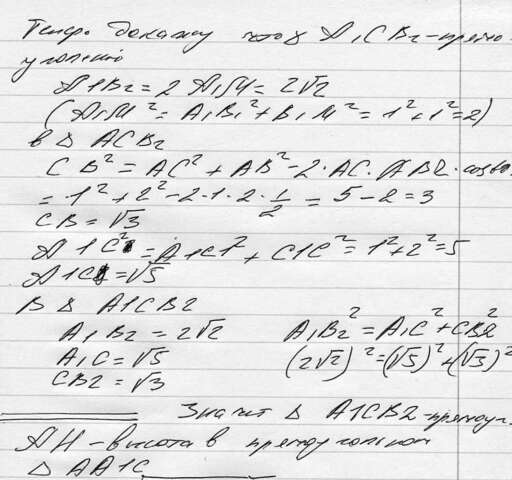 Теперь докажу что Δ A₁CB₂-прямо
угольный
A1B2 = 2 A₁M = 2√2
(A₁M² = A₁B₁² + B₁M² = 1² + 1² = 2)
в Δ ACB₂
CB² = AC² + AB² - 2·AC·AB2·cos60
= 1² + 2² - 2·1·2·1/2 = 5 - 2 = 3
CB = √3
A1C² = A1C1² + C1C² = 1² + 2² = 5
A1C = √5
В Δ A1CB2
A1B2 = 2√2 A₁B₂² = A₁C² + CB2²
A₁C = √5 (2√2)² = (√5)² + (√3)²
CB2 = √3
Значит Δ A1CB2-прямоуг.
AH - высота в прямоугольном
Δ AA1C